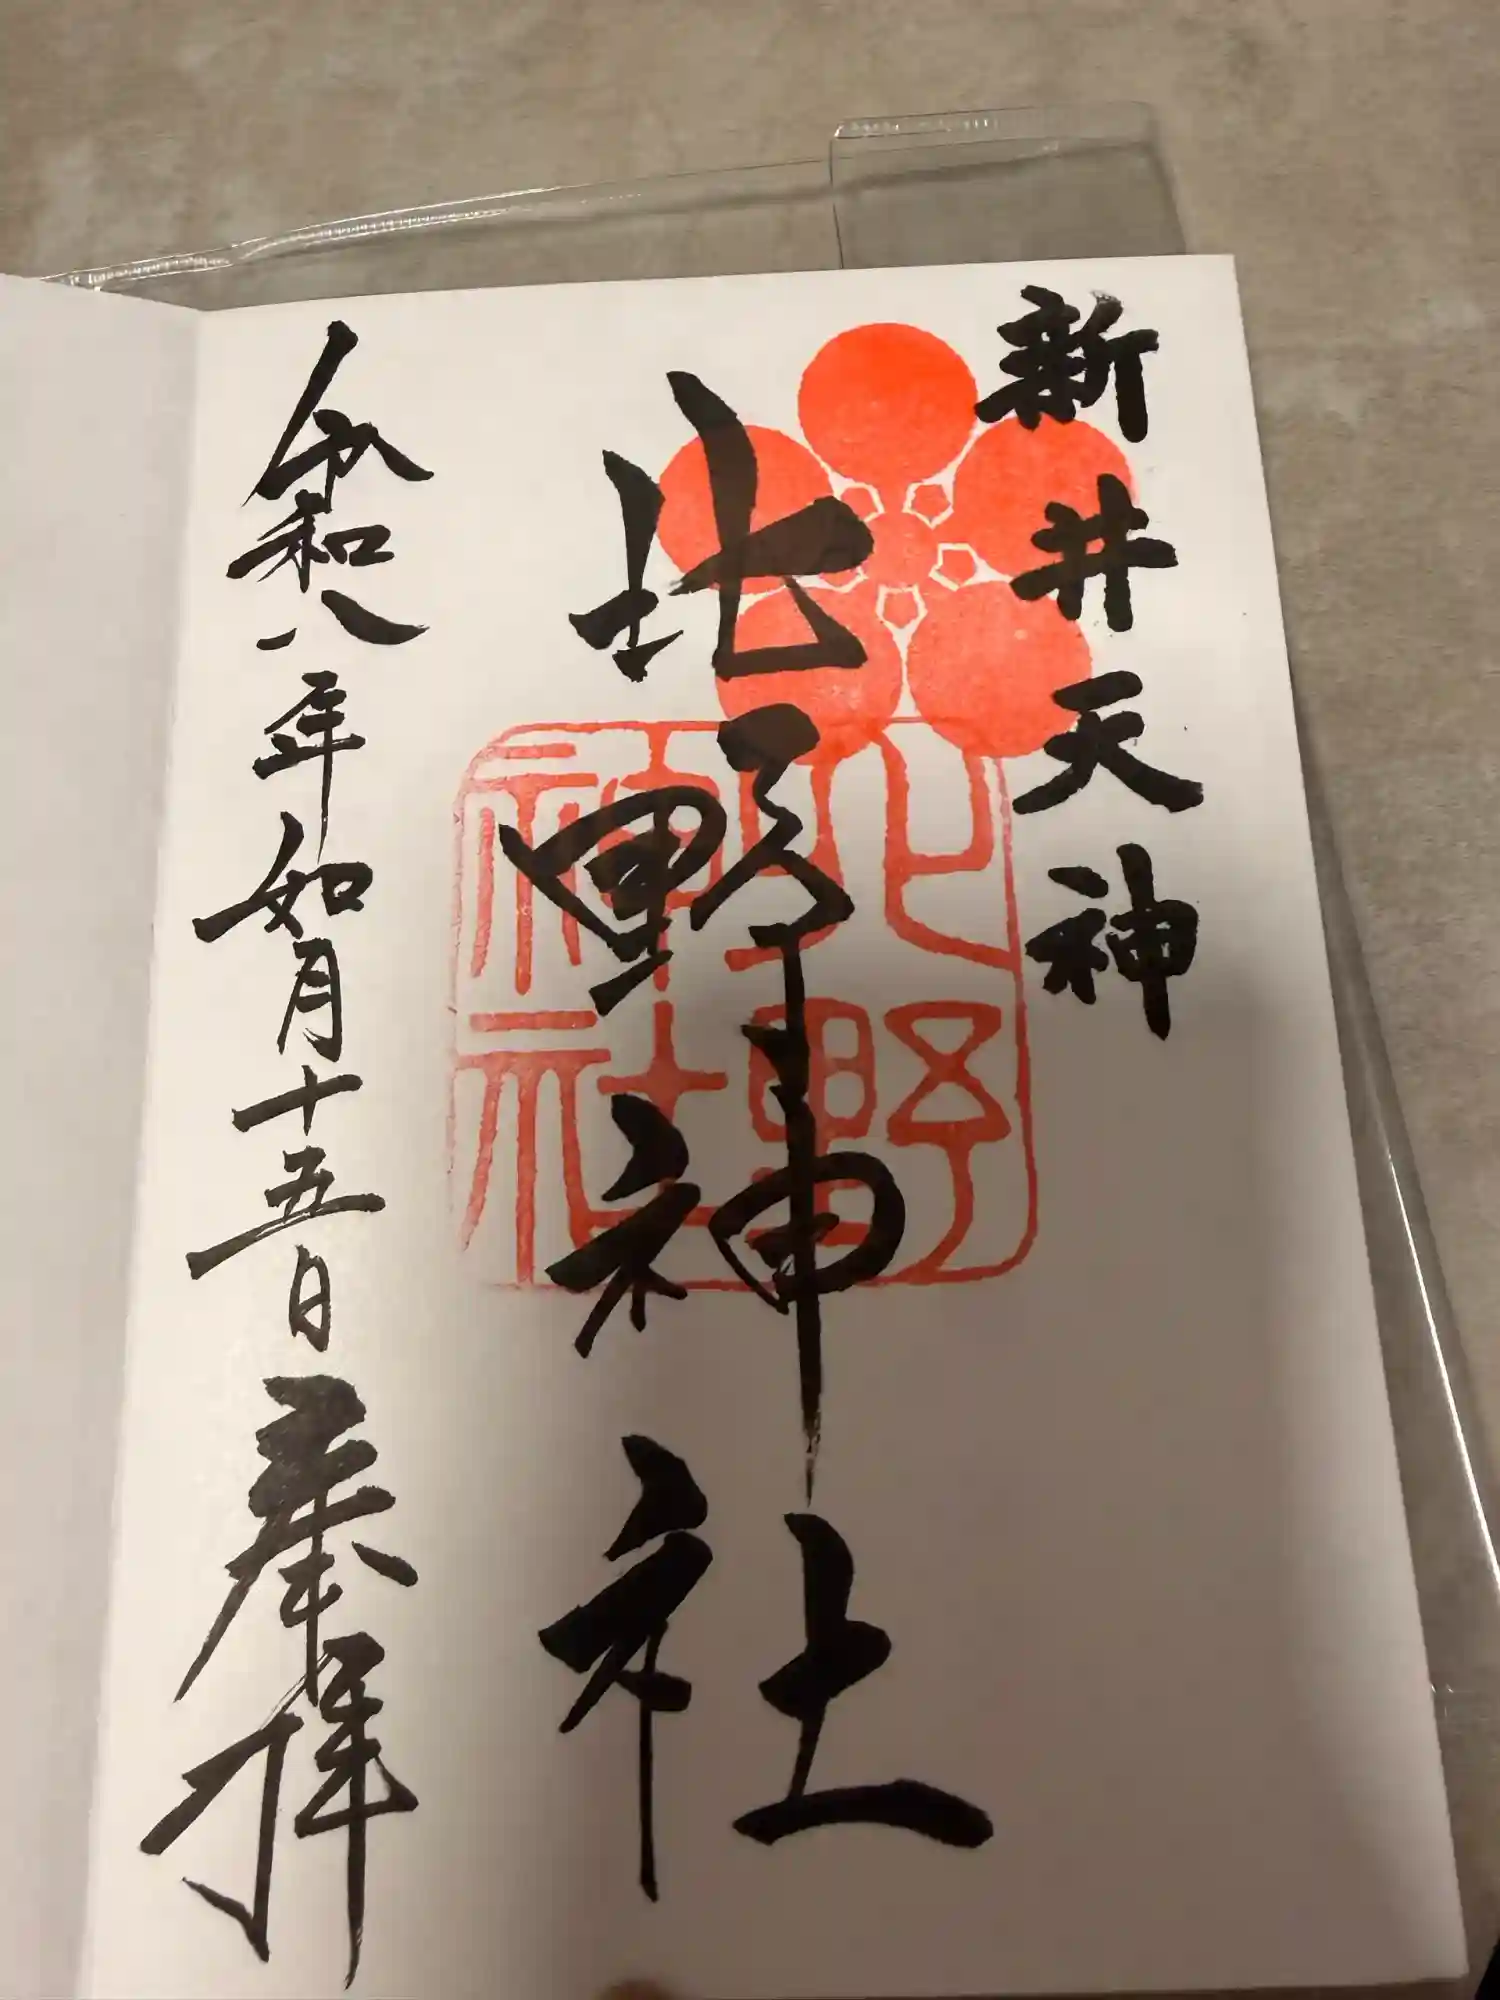 新井天神
北野神社
北野神社
令和八年如月十五日奉拝